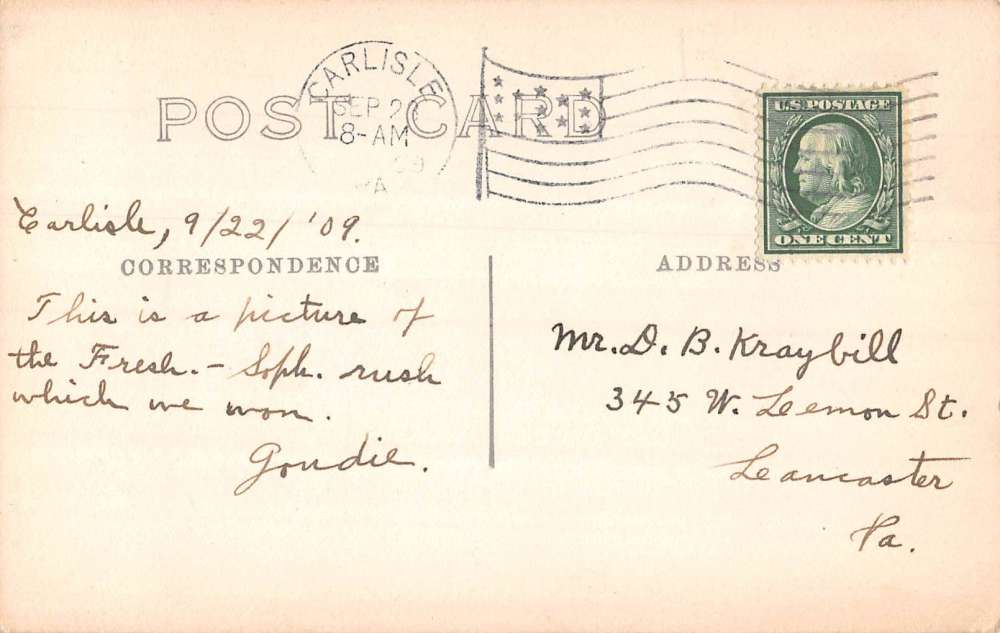 POST CARD
CARLISLE
SEP 2
8-AM
09
PA
U.S. POSTAGE
ONE CENT
Carlisle, 9/22/'09.
CORRESPONDENCE
This is a picture of
the Fresh. - Soph. rush
which we won.
Goudie.
ADDRESS
Mr. D. B. Kraybill
345 W. Lemon St.
Lancaster
Pa.